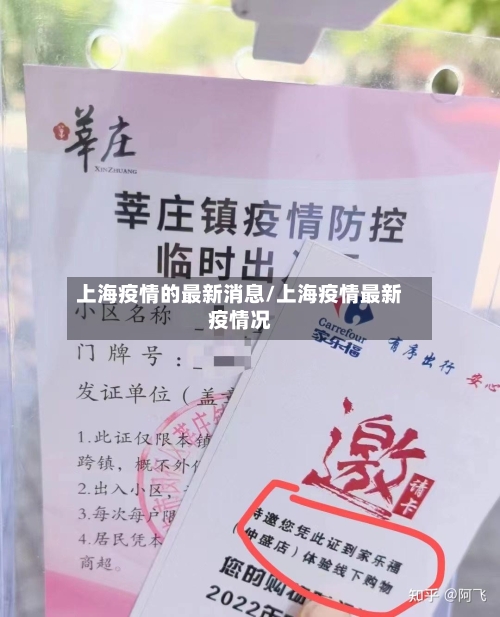 莘庄
XINZHUANG
莘庄镇疫情防控
临时出
上海疫情的最新消息/上海疫情最新
疫情况
小区名称：
门牌号：
发证单位（盖
1.此证仅限本镇
跨镇，概不外
2.出入小区，
3.每次每户限
4.居民凭本
商超。
Carrefour
家乐福
有序出行 安心
邀
请卡
特邀您凭此证到家乐福
（仲盛店）体验线下购物
您的购
2022年
知乎 @阿飞